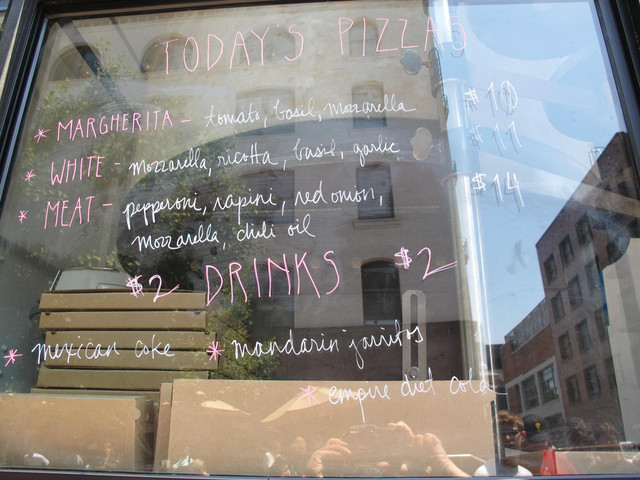 TODAY'S PIZZAS
* MARGHERITA - tomato, basil, mozzarella $10
* WHITE - mozzarella, ricotta, basil, garlic $11
* MEAT - pepperoni, rapini, red onion, $14
mozzarella, chili oil
$2 DRINKS $2
* mexican coke * mandarin jarritos
* empire diet cola